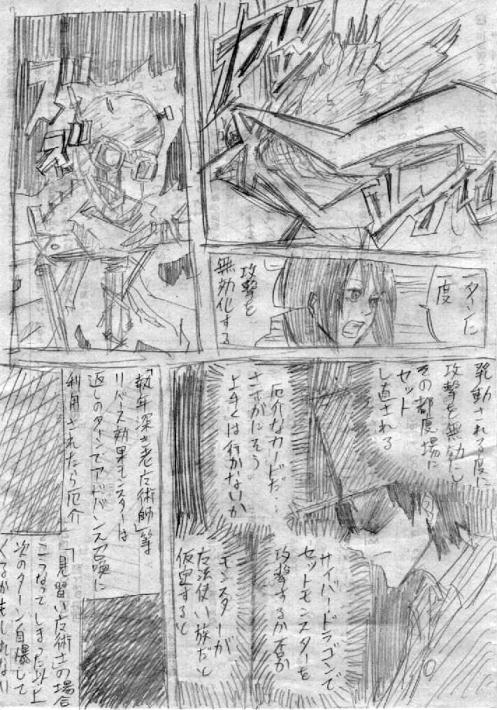 一ターンに
一度
攻撃を
無効化する
発動される度に
攻撃を無効にし
その都度場に
セット
し直される
厄介なカードだ…
さすがにそう
上手くは行かないか
サイバードラゴンで
セットモンスターを
攻撃するか否か
モンスターが
魔法使い族だと
仮定すると
「執念深き老魔術師」等
リバース効果モンスターは
返しのターンでアドバンス召喚に
利用されたら厄介
「見習い魔術師」の場合
こうなってしまった以上
次のターン自爆して
くるかもしれない